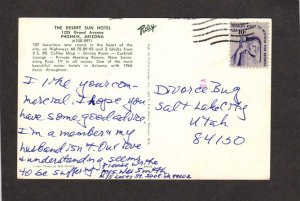 THE DESERT SUN HOTEL
1325 Grand Avenue
PHOENIX, ARIZONA
Petley
107 luxurious new rooms in the heart of the
city, on Highways 60-70-89-93 and 2 blocks from
U.S. 80. Coffee Shop - Dining Room - Cocktail
Lounge - Private Meeting Rooms. New Swimming
Pool. TV in all rooms. One of the most
beautiful motor hotels in Arizona with 1956
decor throughout.
I like your com-
mercial. I hope you
have some good advice.
I'm a member & my
husband isn't. Our love
& understanding seems
to be suffering
Please write
Mrs. Wes Smith
USA
10c
Divorce Bug
Salt Lake City
Utah
84130